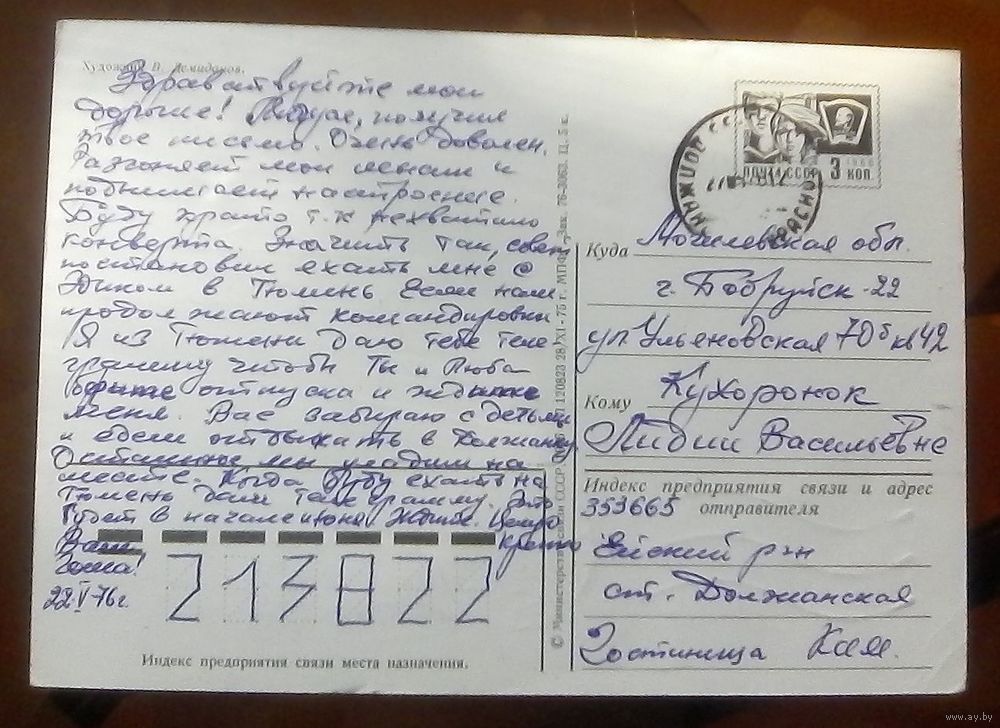 Художник В. Демиданов.
Здравствуйте мои
дорогие! Лидуся, получил
твое письмо. Очень доволен.
Разгоняет мои мысли и
поднимает настроение.
Буду кратко т.к нехватило
конверта. Значить так, совет
постановил ехать мне с
Эдиком в Тюмень Если нам
продолжают командировки
Я из Тюмени даю тебе теле
грамму чтобы Ты и Люба
отпуска и ждите
меня. Вас забираю с детьми
и едем отдыхать в Должанку
Остальное мы уладим на
месте. Когда буду ехать на
Тюмень дам телеграмму. Это
будет в начале июня Ждите. Целую
Ваш крепко
Гоша!
22 V 76г.
213822
Индекс предприятия связи места назначения.
© Министерство связи СССР 120823 28/XI - 75 г. МПФГ. Зак. 76-3063. Ц. 5 к.
ПОЧТА СССР 1966 3 КОП
Куда Могилевская обл.
г. Бобруйск-22
ул Ульяновская 70б кв 42
Кому Кухоронок
Лидии Васильевне
Индекс предприятия связи и адрес
353665 отправителя
Ейский р-н
ст. Должанская
Гостиница
www.ay.by